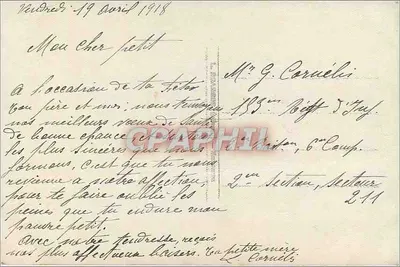 Vendredi 19 avril 1918
Mon cher petit
A l'occasion de ta fête
ton père et moi nous t'envoyons
nos meilleurs vœux de santé
de bonne chance, et
les plus sincères que nous
formons, c'est que tu nous
revienne à notre affection,
pour te faire oublié les
peines que tu endure mon
pauvre petit.
Avec notre tendresse, reçois
nos plus affectueux baisers. Ta petite mère
Cornélis
Mr G. Cornélis
153em Rgt d'Inf.
6em Comp.
2em section, secteur
211
CARTAPHIL